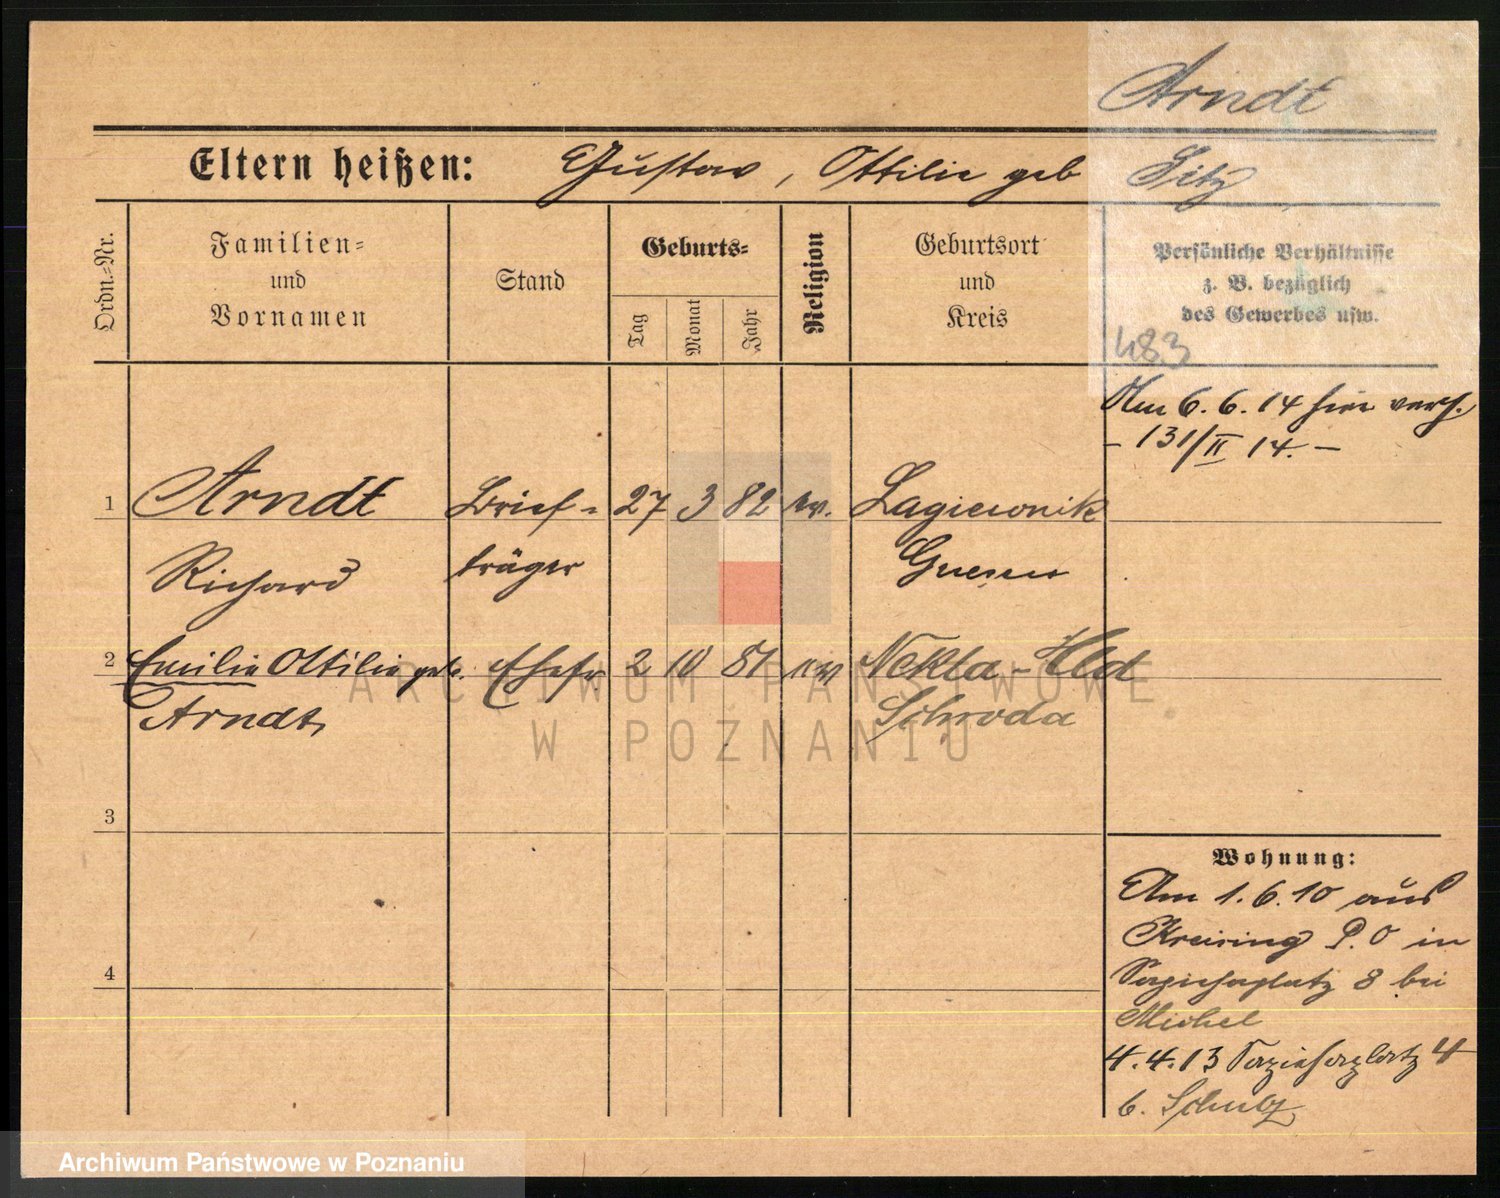 Arndt
Eltern heißen: Gustav, Ottilie geb Sitz
Ordn.=Nr.
Familien=
und
Vornamen
Stand
Geburts=
Tag
Monat
Jahr
Religion
Geburtsort
und
Kreis
Persönliche Verhältnisse
z. B. bezüglich
des Gewerbes usw.
483
Am 6. 6. 14 hier verh.
- 131/II 14. -
1 Arndt Brief= 27 3 82 ev. Lagiewnik
Richard träger Gnesen
2 Emilie Ottilie geb. Ehefr. 2 10 81 ev Nekla-Hld
Arndt, Schroda
3
4
Wohnung:
Am 1. 6. 10 aus
Kreising P. O in
Sapiehaplatz 8 bei
Michel
4. 4. 13 Sapiehaplatz 4
b. Schulz
ARCHIWUM PAŃSTWOWE
W POZNANIU
Archiwum Państwowe w Poznaniu